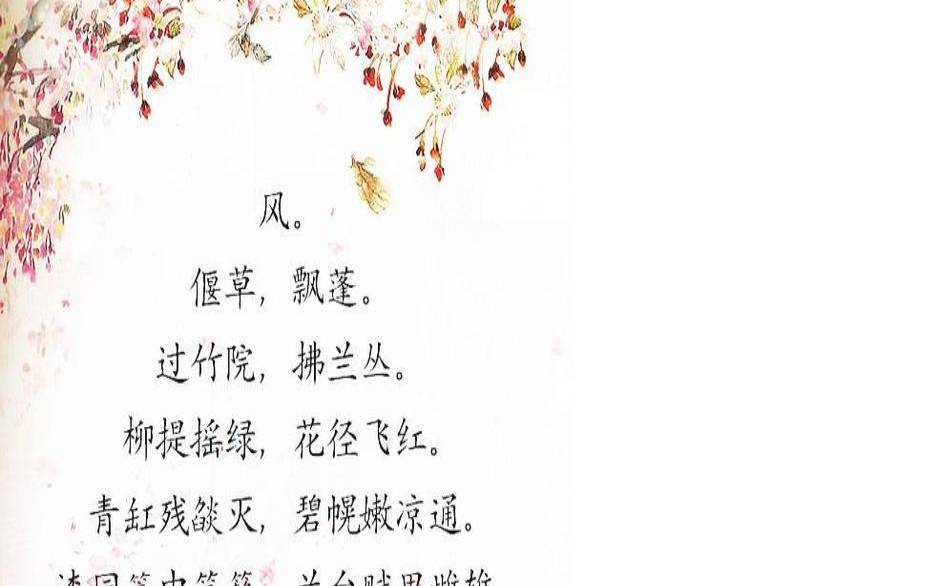 风。
偃草，飘蓬。
过竹院，拂兰丛。
柳提摇绿，花径飞红。
青缸残燄灭，碧幌嫩凉通。